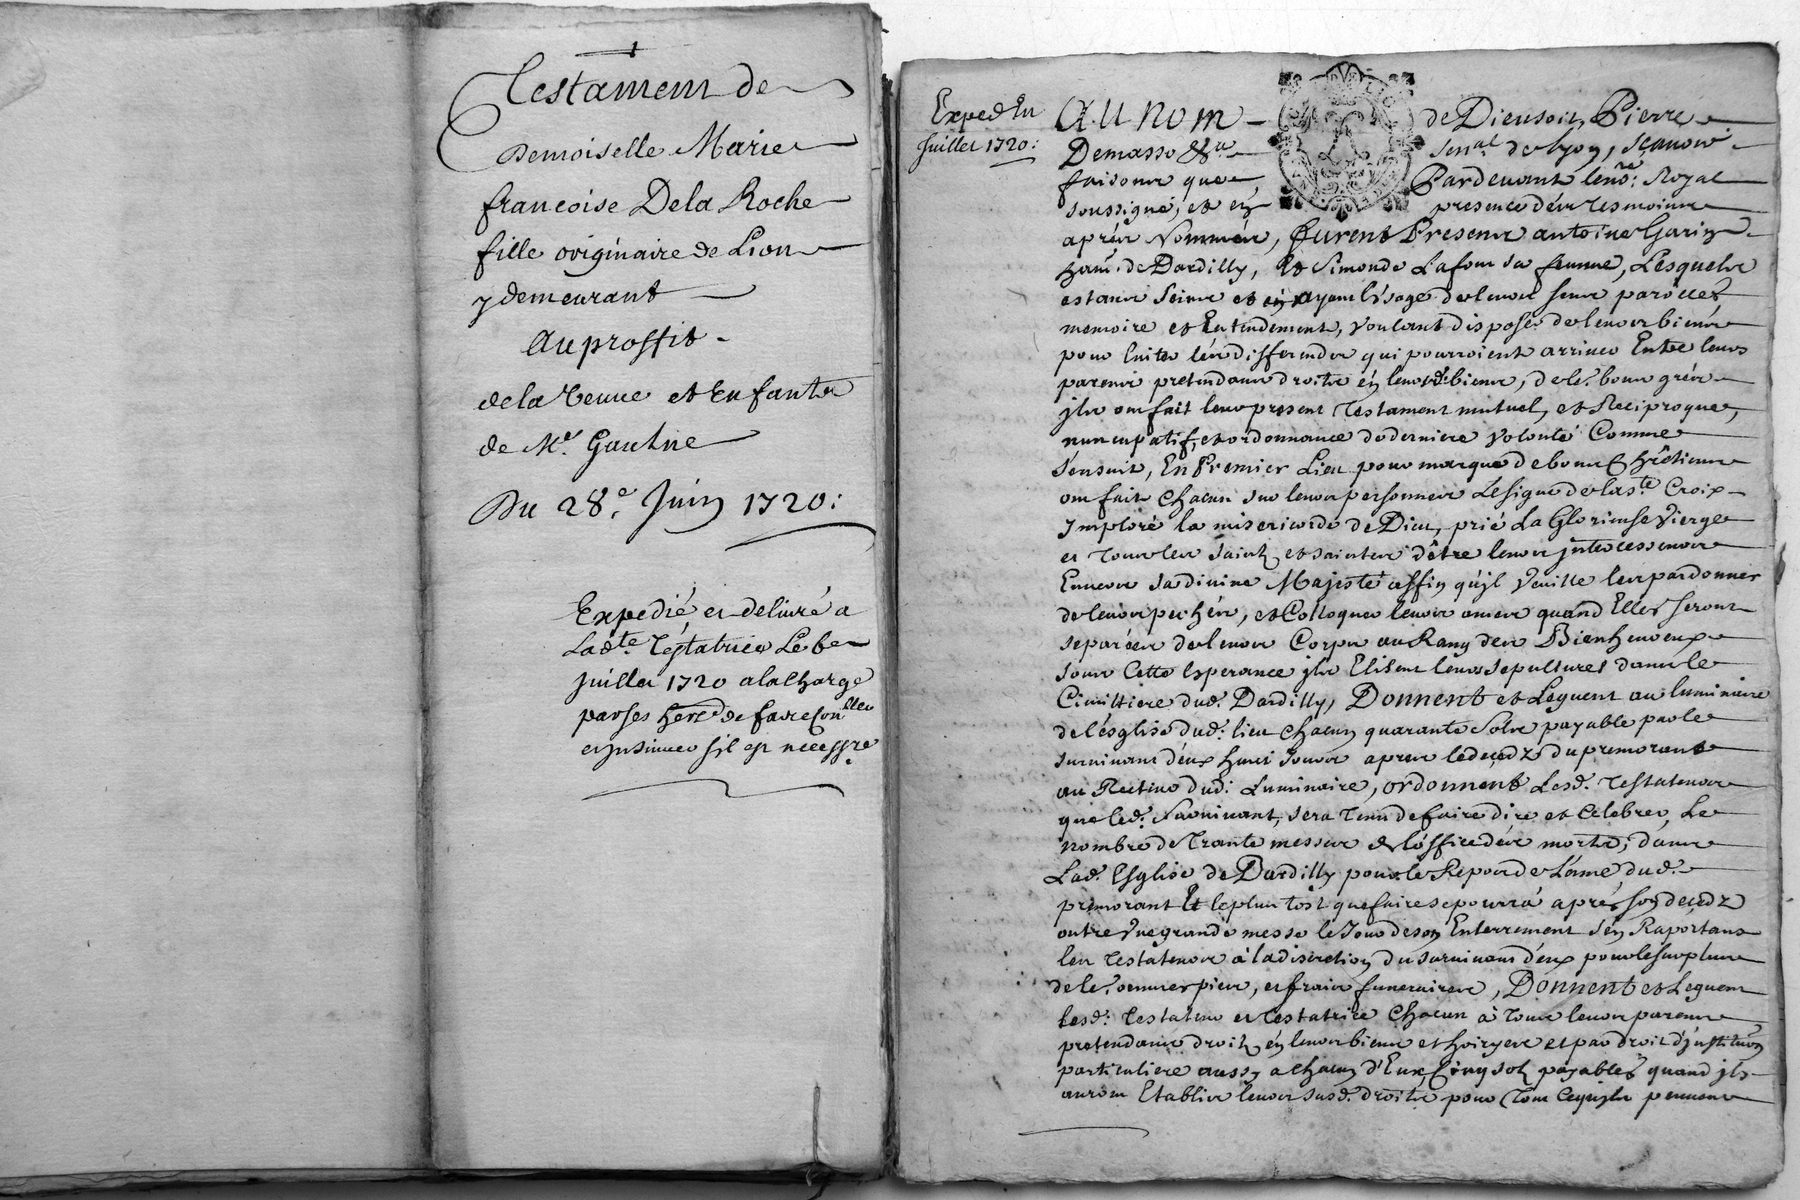 Testament de
Demoiselle Marie
francoise Dela Roche
fille originaire de Lion
y demeurant
Au proffit
de la veuve et Enfants
de Mr. Gaultne
Du 28e. Juin 1720:
Expedié et delivré a
Ladte Testatrice Le 6e
juillet 1720 a la charge
par ses herrs de faire conller
et insinuer s'il est necessre
Exped En
Juillet 1720:
Au nom de Dieu soit, Pierre
Demasso &a Senal de Lyon, sçavoir
faisons que Pardevant le nore: Royal
soussigné, et en presence des tesmoins
aprés Nommés, furent Presens antoine Garin
hant. de Dardilly, Et Simonde Lafont sa femme, Lesquels
estans seins et ayant l'usage de leurs sens parolles
memoire et Entendement, voulant disposer de leurs biens
pour Eviter les differends qui pourroient arriver Entre leurs
parens pretendans droits en leursd. biens, de le. bons grés
jls ont fait leur present Testament mutuel, et Reciproque,
nuncupatif, et ordonnance de derniere volonté Comme
s'ensuit, En Premier Lieu pour marque de bons Chrêtiens
ont fait Chacun sur leurs personnes Le signe de la ste Croix
Imploré la misericorde de Dieu, prié La Glorieuse Vierge
et tous les saints et saintes d'être leurs jntercesseurs
Envers sa divine Majesté affin qu'jl veuille leur pardonner
de leurs pechés, et Colloquer leurs ames quand Elles seront
separées de leurs Corps au Rang des Bienheureux
sous Cette Esperance jls Elisent leurs sepultures dans le
Cimittiere dud. Dardilly, Donnent et Leguent au luminaire
de l'esglise dud. lieu Chacun quarante sols payable par le
survivant d'eux huit jours apres le decedz du premorant
au Recteur dud. Luminaire, ordonnent Lesd. Testateurs
que led. survivant, sera tenu de faire dire et Celebrer, Le
nombre de Trante messes de l'office des morts, dans
Lad. Esglise de Dardilly pour le Repos de L'ame dud.
premorant Et le plus tost que faire se pourra aprés son decedz
outre une grande messe le Jour de son Enterrement s'en Raportans
les Testateurs à la discretion du survivant d'eux pour le surplus
de le. oeuvres pies, et frais funeraires, Donnent et Leguent
Lesd. Testateur et Testatrice Chacun à tous leurs parens
pretendans droits en leurs biens et hoiryes et par droit d'institution
particuliere aussy a chacun d'Eux, Cinq sols payables quand jls
auront Establis leurs susd. droits pour Tout Ce qu'jls peuvent